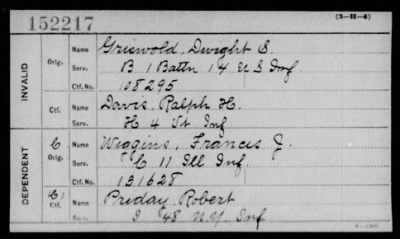 152217
(3—H—4)
INVALID
Orig. Name Griswold, Dwight S.
Serv. B 1 Battn 14 U S Inf
Ctf. No. 108295
Ctf. Name Davis, Ralph H.
Serv. H 4 Vt Inf
DEPENDENT
C. Orig. Name Wiggins, Francis J.
Serv. C 11 Ill Inf.
Ctf. No. 131628
C. Ctf. Name Priday, Robert
Serv. I 48 N.Y. Inf